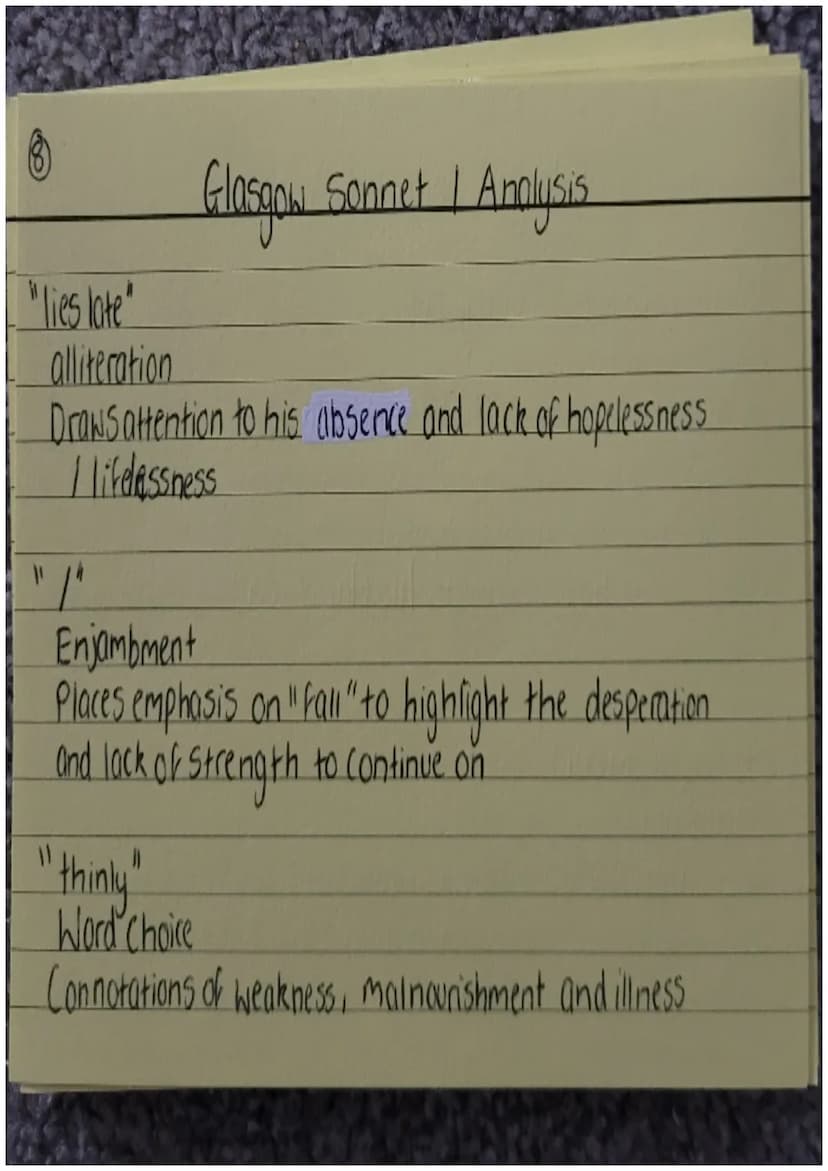 8
Glasgow Sonnet 1 Analysis
"lies late"
alliteration
Draws attention to his absence and lack of hopelessness
/ lifelessness
" / "
Enjambment
Places emphasis on "fall" to highlight the desperation
and lack of strength to continue on
"thinly"
Word choice
Connotations of weakness, malnourishment and illness